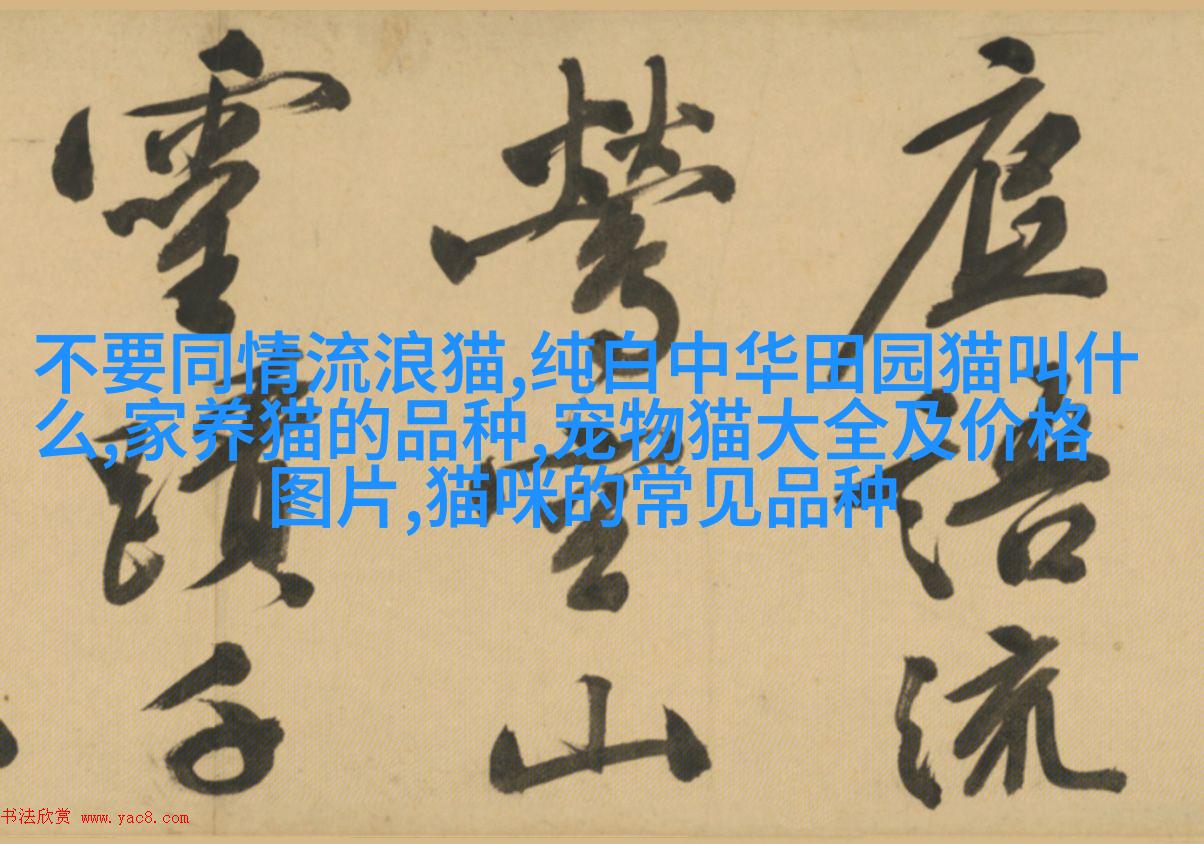 語流
鶯空山
靈蹟千
不要同情流浪猫,纯白中华田园猫叫什
么,家养猫的品种,宠物猫大全及价格
图片,猫咪的常见品种
书法欣赏 www.yac8.com